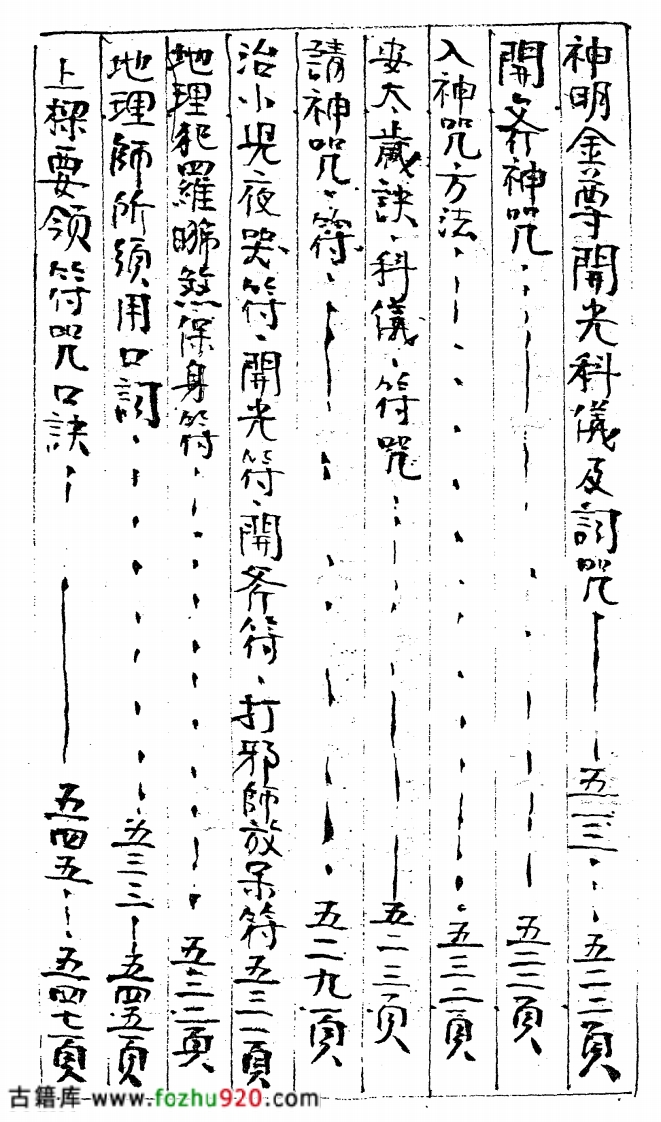 神明金尊開光科儀及詞咒——五一三..五二二頁
開斧神咒......五二二頁
入神咒方法......五三二頁
安太歲訣、科儀、符咒......五二三頁
請神咒、符......五二九頁
治小児夜哭符、開光符、開斧符、打邪師放呆符五三一頁
地理犯羅睺煞保身符......五三二頁
地理師所須用口詞......五三三—五四五頁
上樑要領符咒口訣——五四五..五四七頁
古籍库-www.fozhu920.com